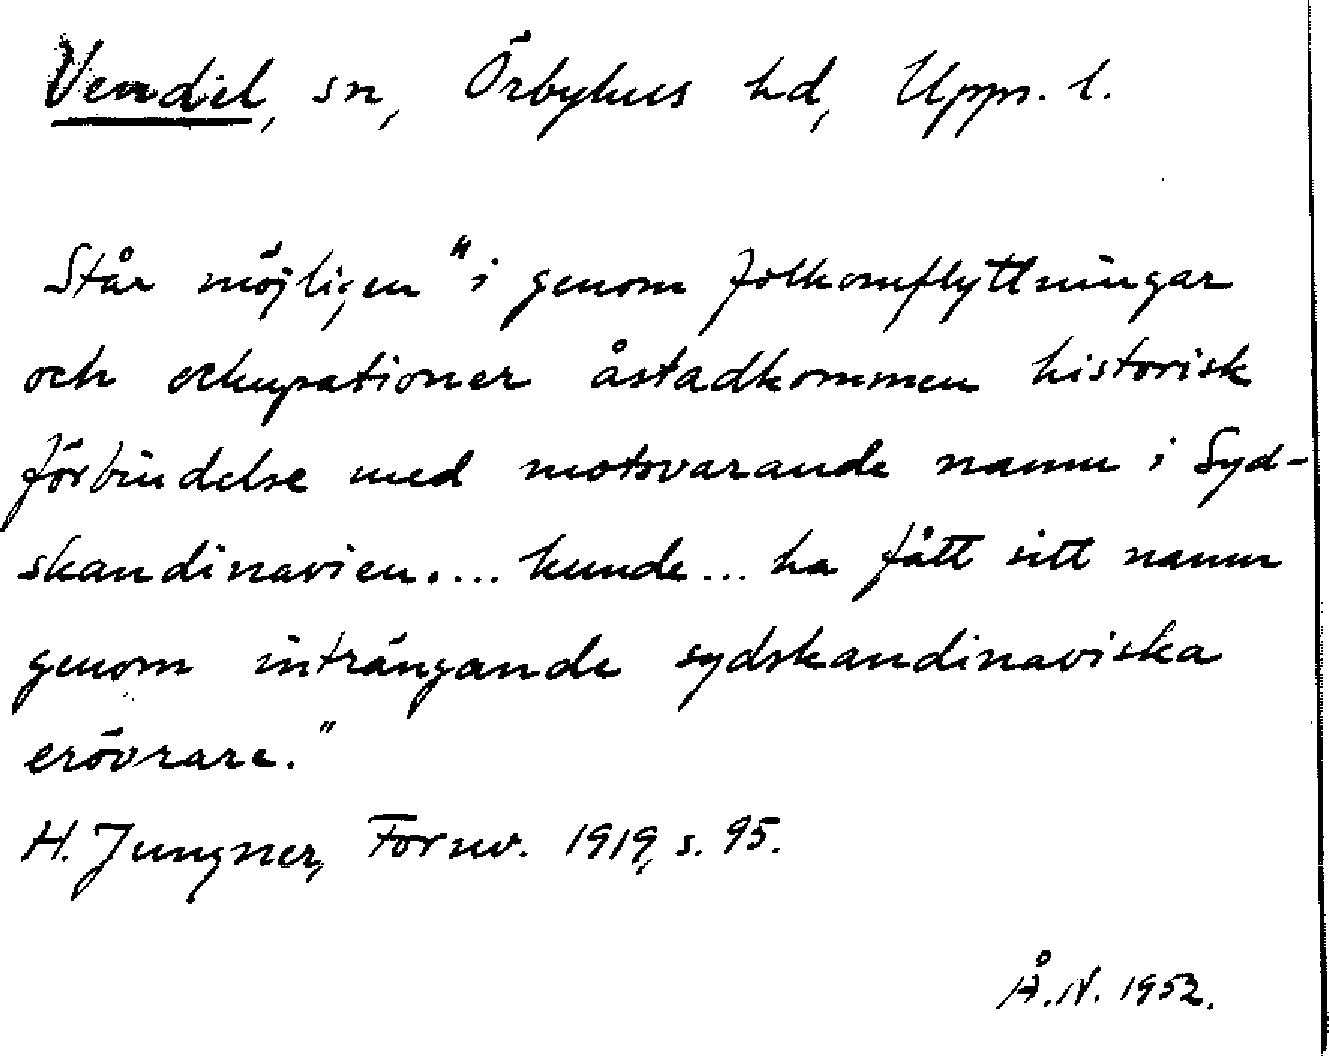 Vendel, sn, Örbyhus hd, Upps. l.
Står möjligen "i genom folkomflyttningar
och ockupationer åstadkommen historisk
förbindelse med motsvarande namn i Syd-
skandinavien.... kunde... ha fått sitt namn
genom inträngande sydskandinaviska
erövrare."
H. Jungner, Fornv. 1919, s. 95.
Å.N. 1952.